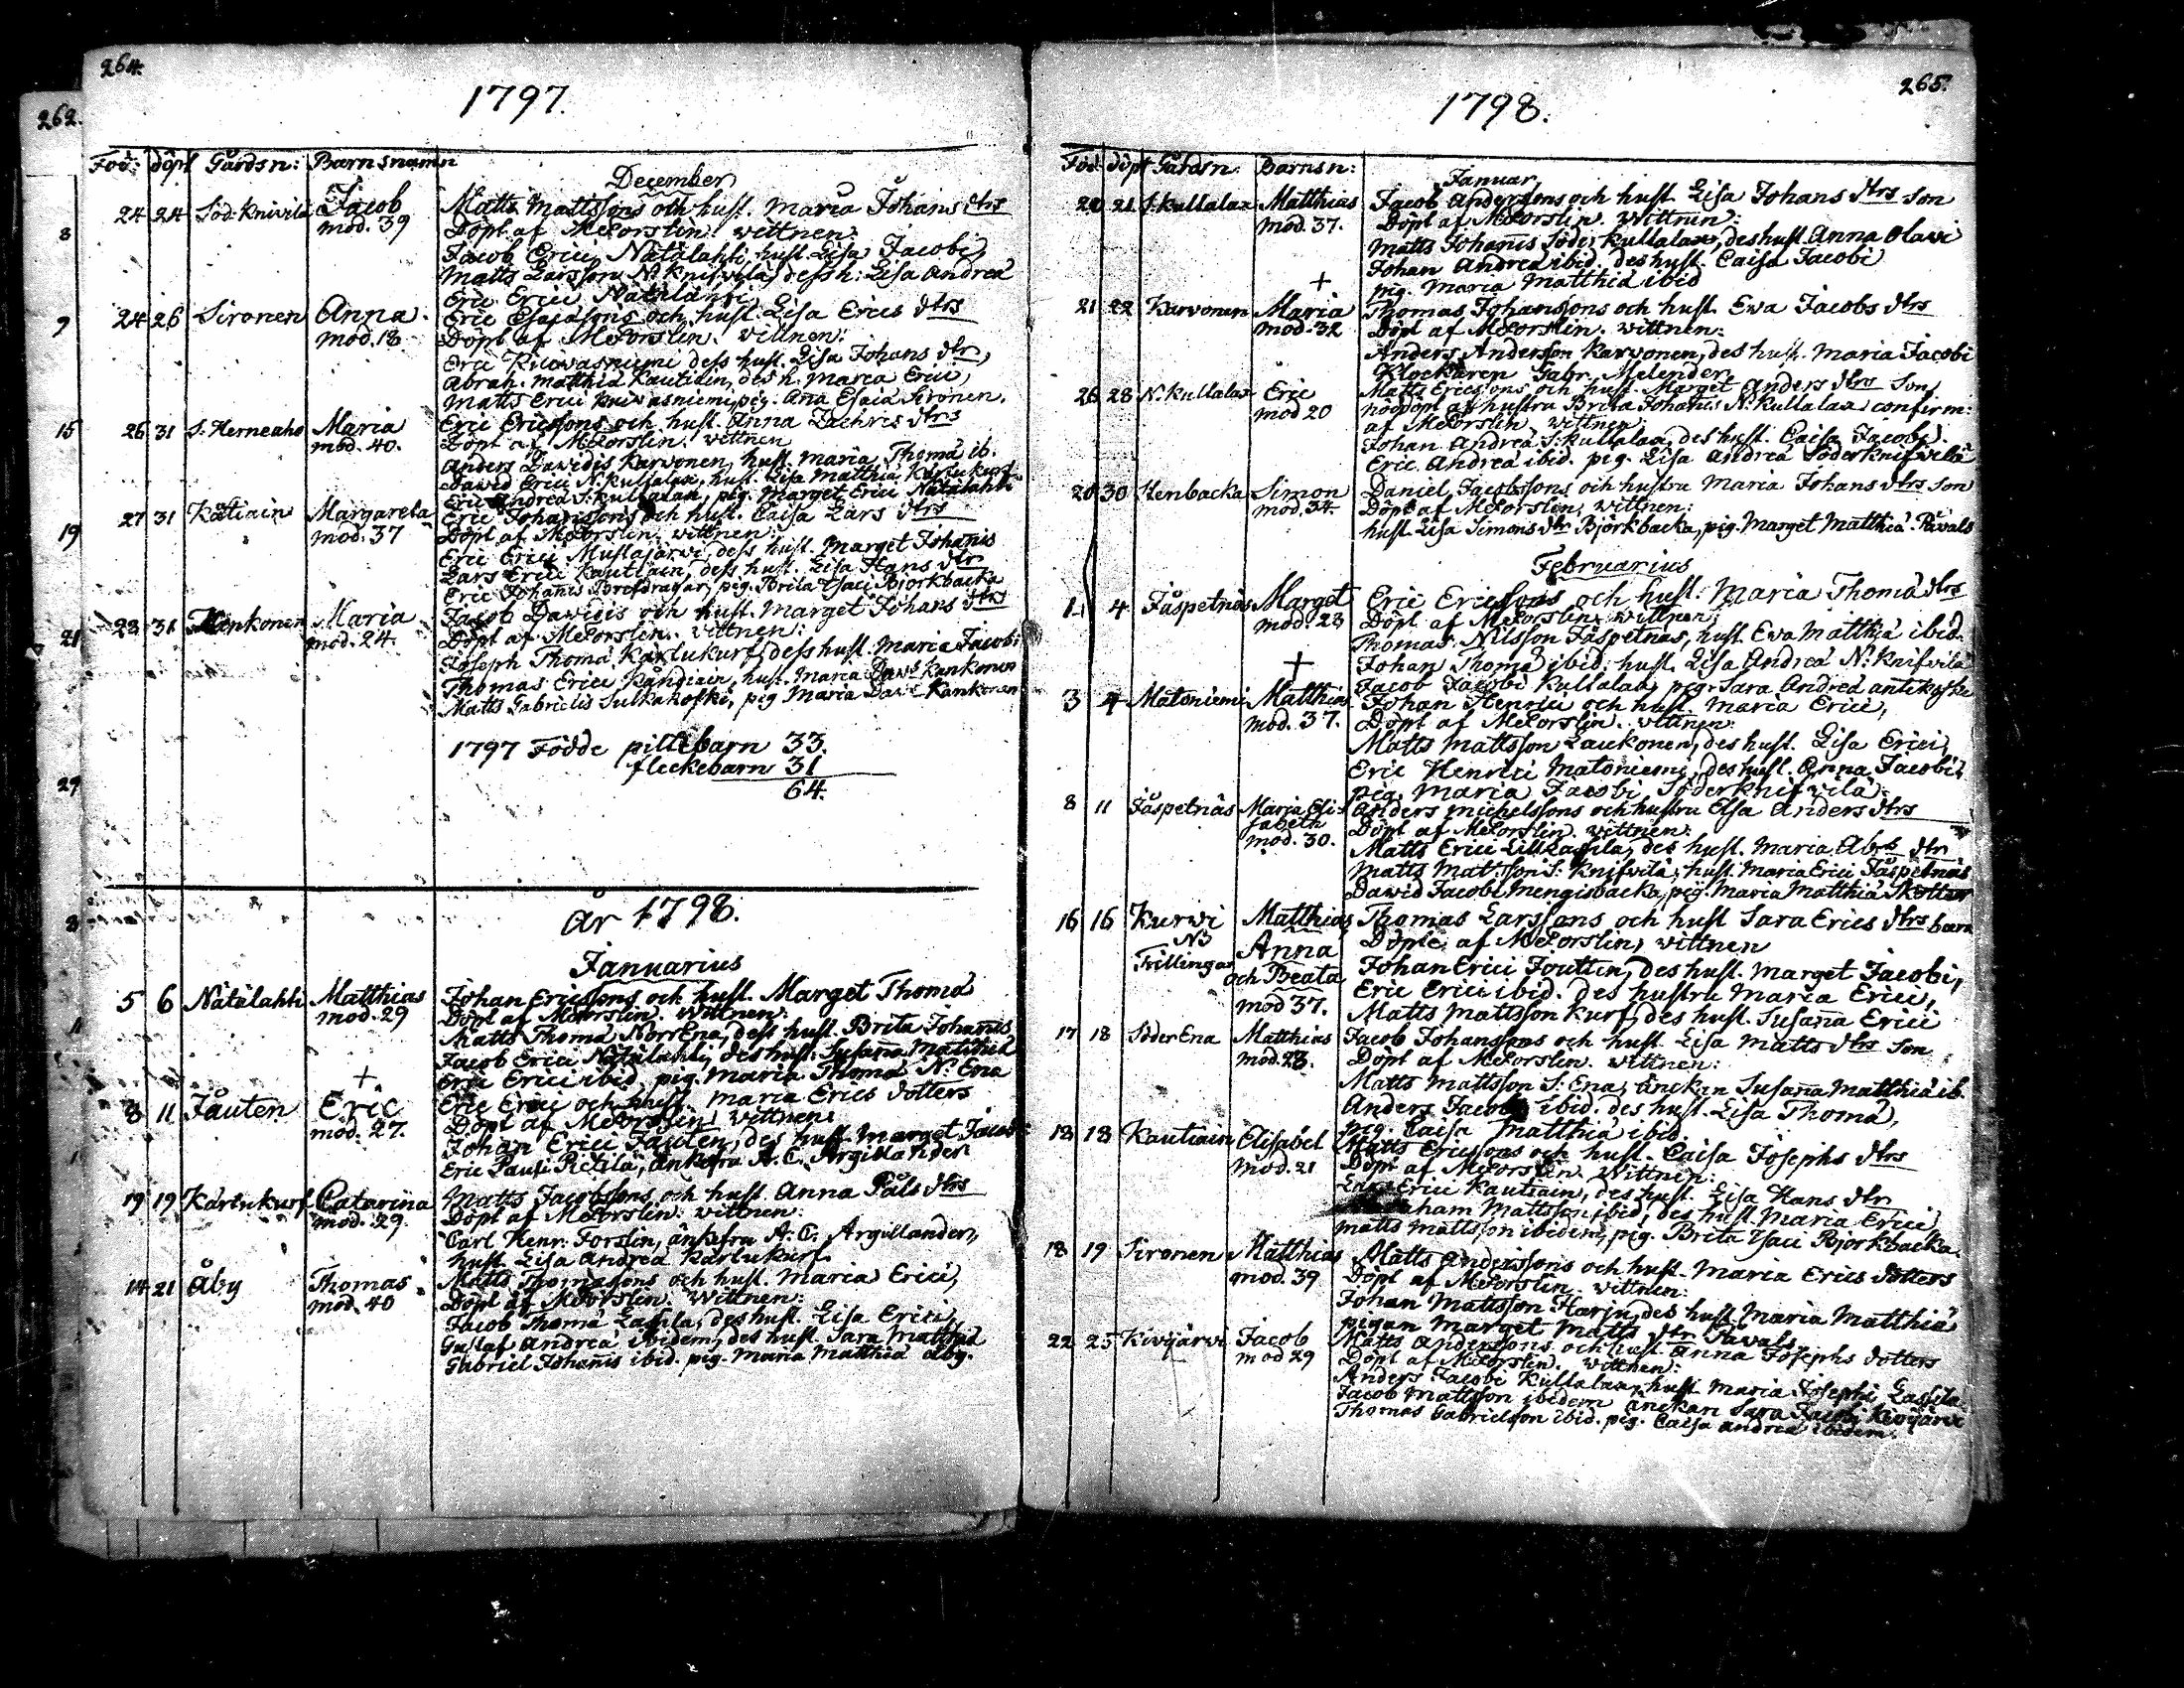 264.
1797.
262.
Föd: döpt Gårdsn: Barnsnamn
December
24 24 Söd. Knivilä Jacob Matts Mattssons och hust. Maria Johans dtrs
8 mod. 39 Döpt af MForslin. wittnen:
Jacob Erici Nätälahti, hust. Lisa Jacobi,
Matts Larsson N: Knifvilä, dess h: Lisa Andreä
Eric Erici Nätälahti
9 24 26 Sironen Anna. Eric Esaiasons och hust. Lisa Erics dtrs
mod. 18 Döpt af MForslin. wittnen:
Eric Kuivasniemi dess hust. Lisa Johans dtr,
Abrah. Matthiä Kautiain, des h. Maria Erici,
Matts Erici Kuivasniemi, pig. Aña Esaiä Sironen.
15 26 31 S. Herneaho Maria Eric Ericssons och hust. Anna Zachris dtrs
mod. 40. Döpt af MForslin. wittnen
Anders Davidis Karvonen, hust. Maria Thomä ib.
David Erici N. Kullalax, hust. Lisa Matthiä Karlukurf
Eric Andreä S: Kullalax, pig. Marget Erici Nätälahti
19 27 31 Kåtiain Margareta Eric Johanssons och hust. Caisa Lars dtrs
mod. 37 Döpt af MForslin. wittnen:
Eric Erici Mustajärvi, dess hust. Marget Johañis
Lars Erici Kautiain, dess hust. Lisa Hans dtr
Eric Johañis Brefdragar, pig. Brita Ysaci Björkbacka
21 28 31 Kenkonen Maria Jacob Davidis och hust. Marget Johans dtrs
mod. 24. Döpt af MForslin. wittnen:
Joseph Thomä Karlukurf, dess hust. Maria Jacobi
Thomas Erici Kandiain, hust. Maria Dav: Kankonen
Matts Gabrielis Sulkakoski, pig Maria Dav: Kankonen
1797 Födde piltebarn 33.
fleckebarn 31
64.
29
år 1798.
8
Januarius
5 6 Nätälahti Matthias Johan Ericssons och hust. Marget Thomä
mod. 29 Döpt af MForslin. wittnen:
Matts Thomä NorrEna, dess hust. Brita Johañis
Jacob Erici Nätälahti, des hust. Susaña Matthiä
+ Eric Erici ibid, pig. Maria Thomä N: Ena
8 11 Jåuten Eric Eric Erici och hust. Maria Erics dotters
mod. 27. Döpt af MForslin, wittnen:
Johan Erici Jauten, des hust. Marget Jacobi
Eric Pauli Pietilä, änkefru A. C. Argillander
19 19 Karlukurf Catarina Matts Jacobssons och hust. Anna Påls dtrs
mod. 29. Döpt af MForslin: wittnen:
Carl Henr: Forslin, änkefru A. C. Argillander,
hust. Lisa Andreä Karlukurf
14 21 Åby Thomas Matts Thomasons och hust. Maria Erici,
mod. 40 Döpt af MForslin. Wittnen:
Jacob Thomä Lassila, des hust. Lisa Erici,
Gustaf Andreä ibidem, des hust. Sara Matthiä
Gabriel Johañis ibid. pig. Maria Matthiä Åby.
265.
1798.
Föd: döpt Gårdsn Barnsn:
Januar
20 21 S. Kullalax Matthias Jacob Anderssons och hust. Lisa Johans dtrs son
mod. 37. Döpt af MForslin. Wittnen:
Matts Johañis Söder Kullalax, des hust. Anna Olavi
Johan Andreä ibid. des hust. Caisa Jacobi
+ pig. Maria Matthiä ibid
21 22 Karvonen Maria Thomas Johanssons och hust. Ewa Jacobs dtrs
mod. 32 Döpt af MForslin. wittnen:
Anders Andersson Karvonen, des hust. Maria Jacobi
Klockaren Gabr. Melender
26 28 N: Kullalax Eric Matts Ericssons och hust. Marget Anders dtrs Son
mod 20 nöddöpt af hustru Brita Johañis N: Kullalax confirm:
af MForslin wittnen
Johan Andreä S: Kullalax, des hust. Caisa Jacobi.
Eric Andreä ibid. pig. Lisa Andreä Söderknifvilä
20 30 Kenbacka Simon Daniel Jacobssons och hustru Maria Johans dtrs son
mod. 34. Döpt af MForslin, wittnen:
hust. Lisa Simons dtr Björkbacka, pig. Marget Matthiä Påvals
Februarius
1. 4. Jåspetnäs Marget Eric Ericssons och hust. Maria Thomä dtrs
mod. 28 Döpt af MForslin, wittnen:
Thomas Nilsson Jåspetnäs, hust. Ewa Matthiä ibid.
+ Johan Thomä ibid. hust. Lisa Andreä N: Knifvilä
Jacob Jacobi Kullalax, pig. Sara Andreä
3 4 Matoniemi Matthias Johan Henrici och hust. Maria Erici,
mod. 37. Döpt af MForslin. wittnen:
Matts Mattsson Laukonen, des hust. Lisa Erici,
Eric Henrici Matoniemi, des hust. Anna Jacobi,
pig. Maria Jacobi Söderknifvilä.
8 11 Jåspetnäs Maria Eli- Anders Michelssons och hustru Elsa Anders dtrs
sabeth Döpt af MForslin. wittnen:
mod. 30. Matts Erici Lill Lassila, des hust. Maria Abrs dtr
Matts Matssson S: Knifvilä, hust. Maria Erici Jåspetnäs
David Jacobi Mengisbacka, pig. Maria Matthiä Skottar
16 16 Kurvi Matthias Thomas Larssons och hust Sara Erics dtrs barn
NB Anna Döpte af MForslin, wittnen
Trillingar och Beata Johan Erici Joutten, des hust. Marget Jacobi,
mod 37. Eric Erici ibid. des hustru Maria Erici,
Matts Mattsson Kurf, des hust. Susaña Erici
17 18 SöderEna Matthias Jacob Johanssons och hust. Lisa Matts dtrs Son
mod. 28. Döpt af MForslin. wittnen:
Matts Mattsson S: Ena, änckan Susaña Matthiä ib.
Anders Jacobi ibid. des hust. Lisa Thomä,
pig. Caisa Matthiä ibid.
18 18 Kautiain Elisabet Matts Ericssons och hust. Caisa Josephs dtrs
mod. 21 Döpt af MForslin. Wittnen:
Lars Erici Kautiain, des hust. Lisa Hans dtr
Mattsson ibid, des hust. Maria Erici,
Matts Mattsson ibidem, pig. Brita Ysaci Björkbacka.
18 19 Sironen Matthias Matts Anderssons och hust. Maria Erics dotters
mod. 39 Döpt af MForslin. wittnen:
Johan Mattsson Harju, des hust. Maria Matthiä
pigan Marget Matts dtr Påvals
22 25 Kivijärvi Jacob Matts Anderssons och hust. Anna Josephs dotters
mod 29 Döpt af MForslin. wittnen:
Anders Jacobi Kullalax, hust Maria Josephi Lassila
Jacob Mattsson ibidem änckan Sara Jacobi Kivijärvi
Thomas Gabrielsson ibid. pig. Caisa Andreä ibidem.